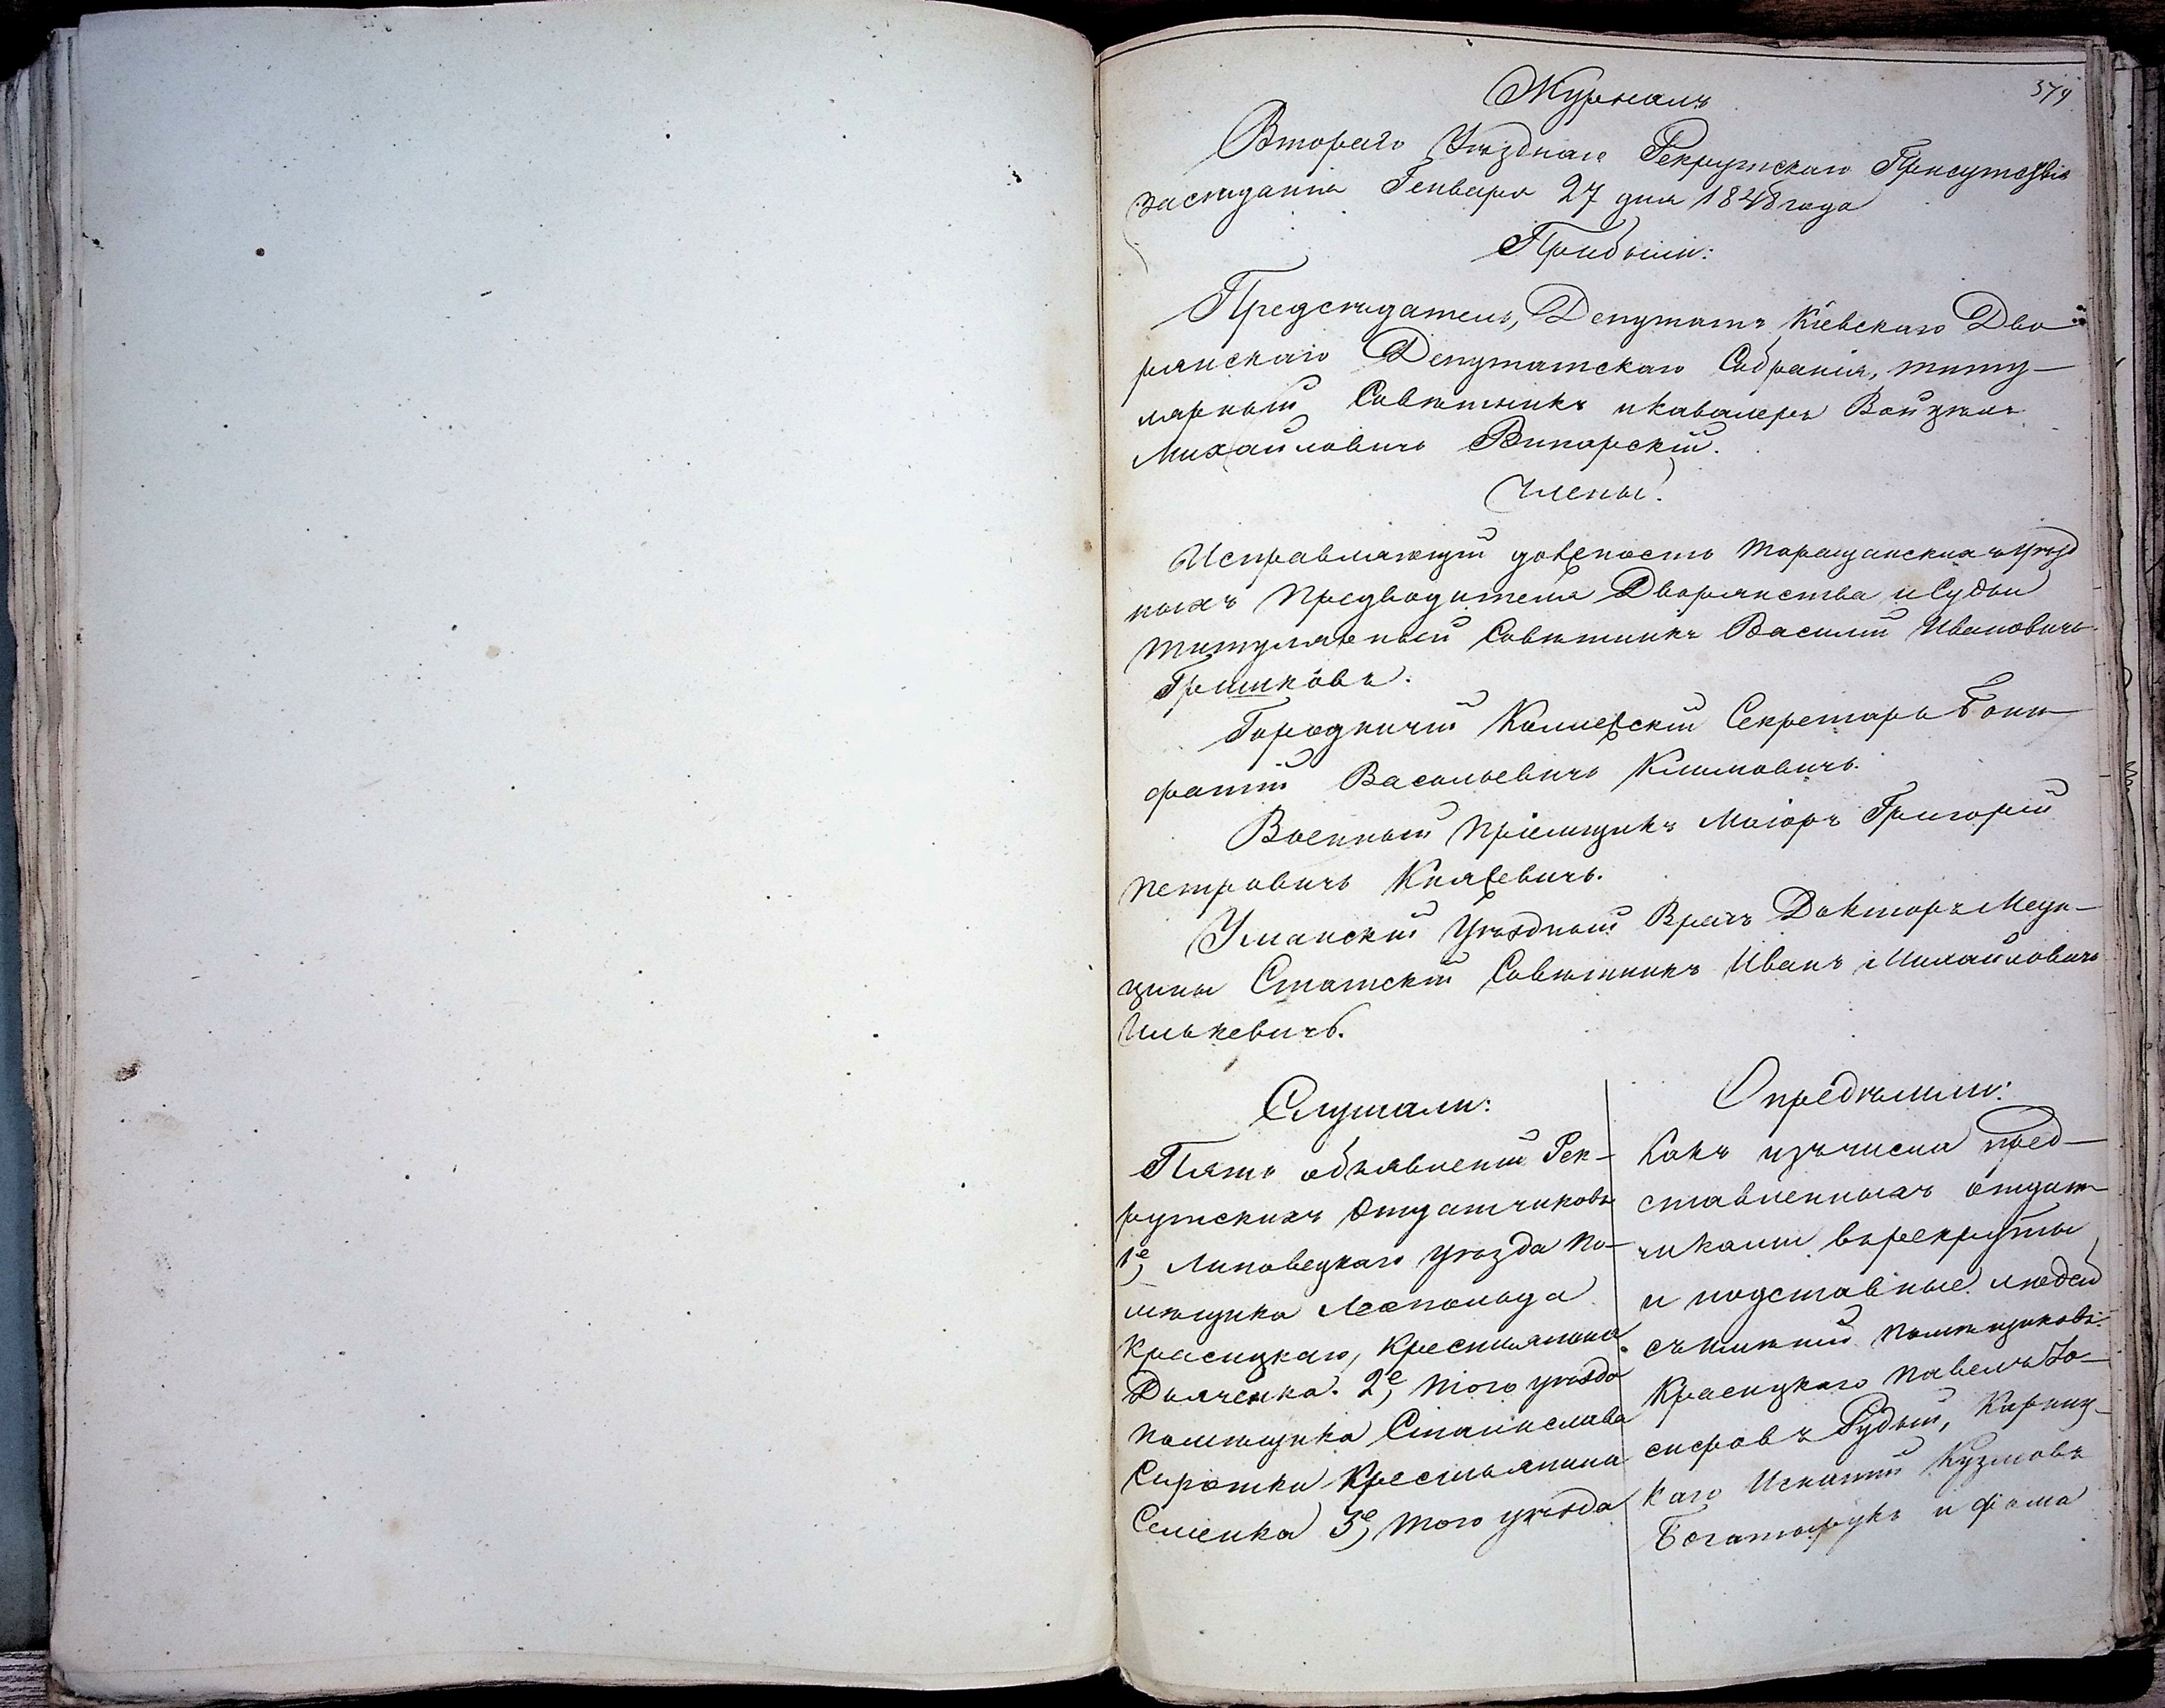 379
Журналъ
Втораго Уѣзднаго Рекрутскаго Присутствія
засѣданія Генваря 27 дня 1848 года
Прибыли:
Предсѣдатель, Депутатъ Кіевскаго Дво
рянскаго Депутатскаго Собранія, титу-
лярный Совѣтникъ и кавалеръ
Михайловичъ
Члены:
Исправляющій должность Таращанскихъ Уѣзд
ныхъ предводителя Дворянства и Судьи
титулярный Совѣтникъ Василій Ивановичъ
Гришковъ.
Городничій Колежскій Секретарь Бони
фатій Васильевичъ Климовичъ.
Военный пріемщикъ Маіоръ Григорій
петровичъ Княжевичъ.
Уманскій Уѣздный Врачъ Докторъ Меди-
цины Статскій Совѣтникъ Иванъ Михайловичъ
Илькевичъ.
Слушали:
Пять объявленій Рек-
рутскихъ отдатчиковъ
1е, Липовецкаго уѣзда по-
мѣщика Леопольда
Красицкаго, крестьянина
Дьяченка. 2е, того уѣзда
помѣщика Станислава
Сиротки крестьянина
Семенка 3е, того уѣзда
Опредѣлили:
Какъ изъ числа пред-
ставленныхъ отдат-
чиками въ рекруты
и подставные людей
съ имѣній помѣщиковъ:
Красицкаго павелъ Іо-
сифовъ Рудый,
каго Игнатій Кузмовъ
и фома